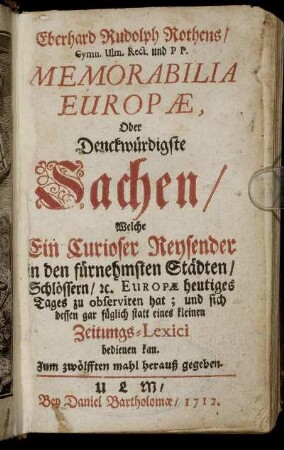 Eberhard Rudolph Rothens/
Gymn. Ulm. Rect. und P P.
MEMORABILIA
EUROPÆ,
Oder
Denckwürdigste
Sachen/
Welche
Ein Curioser Reysender
in den fürnehmsten Städten/
Schlössern/ ꝛc. EUROPÆ heutiges
Tages zu observiren hat; und sich
dessen gar füglich statt eines kleinen
Zeitungs-Lexici
bedienen kan.
Zum zwölfften mahl herauß gegeben.
ULM/
Bey Daniel Bartholomæ/ 1712.